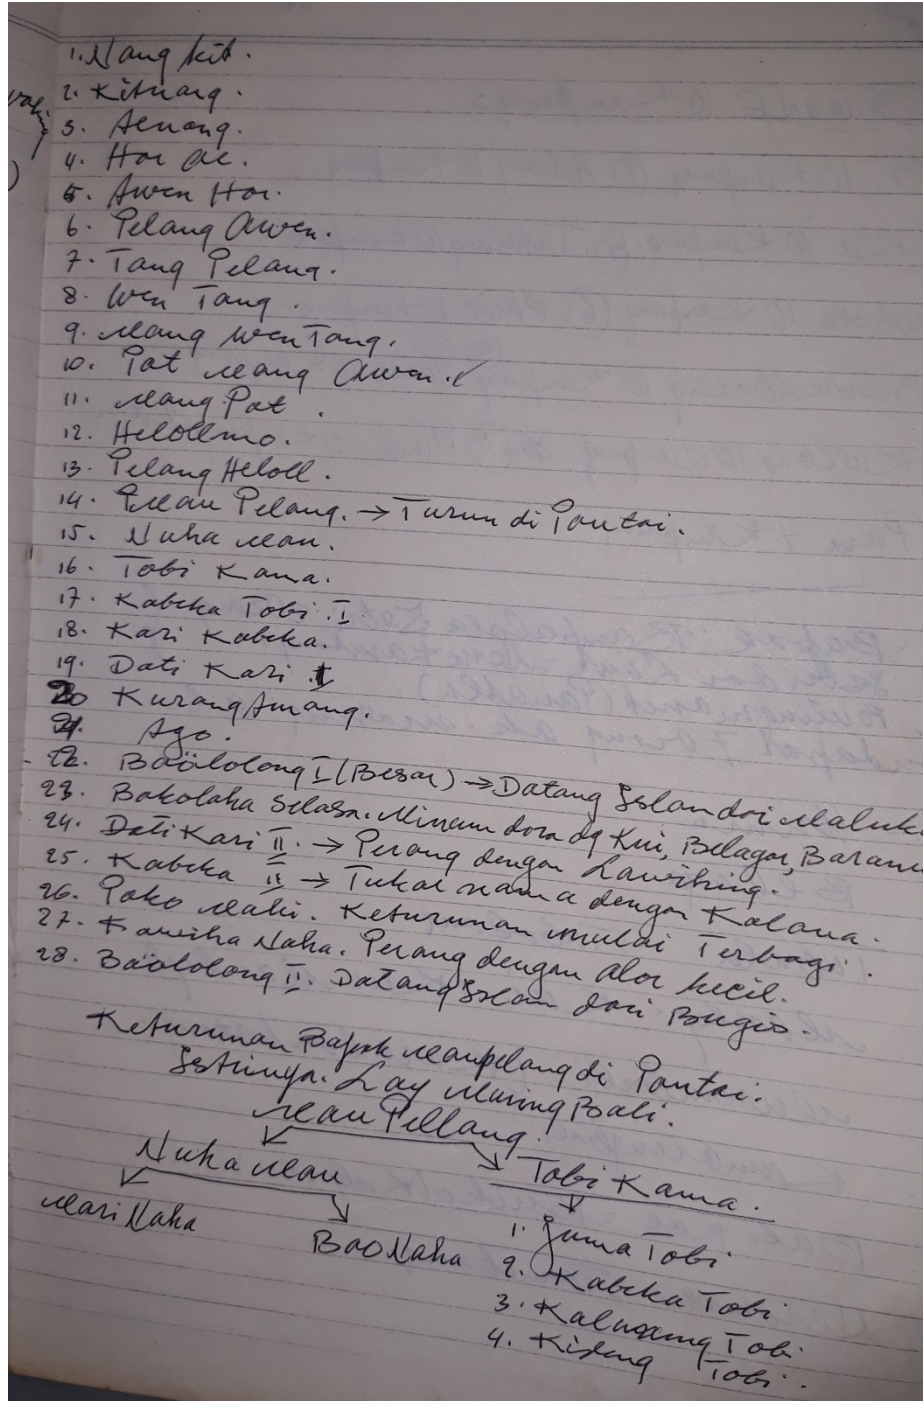 1. Nang kit.
2. Kitnang.
3. Aenang.
4. Hor ae.
5. Awen Hor.
6. Pelang Awen.
7. Tang Pelang.
8. Wen Tang.
9. Mang Wen Tang.
10. Pat Mang Awen.
11. Mang Pat.
12. Helollmo.
13. Pelang Heloll.
14. Mau Pelang. → Turun di Pantai.
15. Nuha Mau.
16. Tobi Kama.
17. Kabeka Tobi. I
18. Kari Kabeka.
19. Dati Kari I
20 Kurang Amang.
21. Ago.
22. Baölolong I (Besar) → Datang Islam dari Maluku
23. Bakolaha Selasa. Minum dara dg Kui, Belagar, Baranu
24. Dati Kari II. → Perang dengan Lawihing.
25. Kabeka II → Tukar nama dengan Kalana.
26. Pako Mahi. Keturunan mulai Terbagi.
27. Kawiha Naha. Perang dengan Alor kecil.
28. Baololong II. Datang Islam dari Bugis.
Keturunan Bapak Maupelang di Pantai.
Istrinya. Lay Maring Bali.
Mau Pellang.
Nuha Mau
Tobi Kama.
Mari Naha
Bao Naha
1. Juma Tobi
2. Kabeka Tobi
3. Kalugung Tobi.
4. Kideng Tobi.